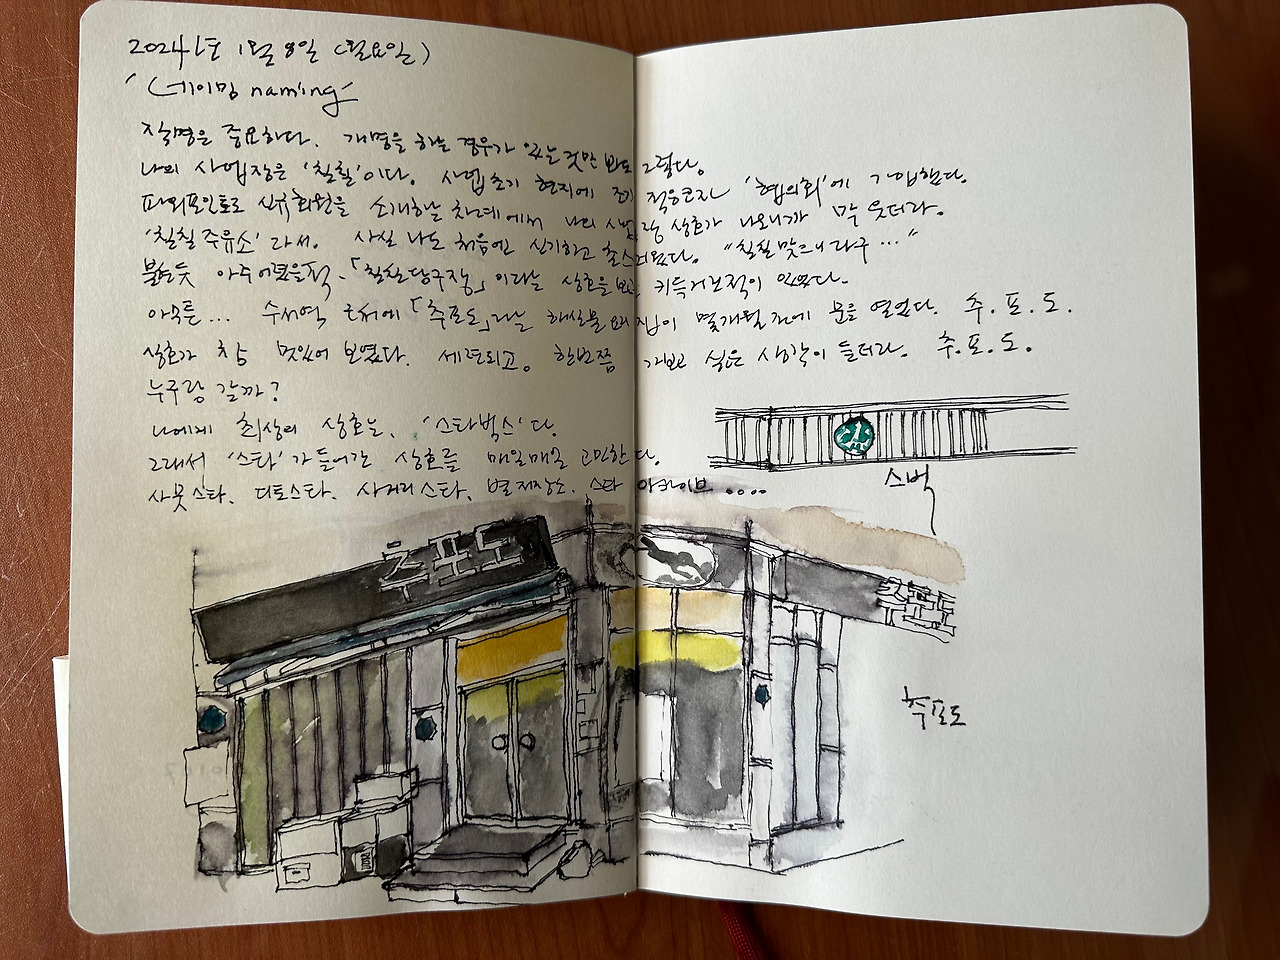 2024년 1월 8일 (월요일)
'네이밍 naming'
작명은 중요하다. 개명을 하는 경우가 있는 것만 봐도 그렇다.
나의 사업장은 '칠칠'이다. 사업 초기 현지에 조기 적응코자 '협의회'에 가입했다.
파워포인트로 신규회원을 소개하는 차례에서 나의 사업장 상호가 나오니까 막 웃더라.
'칠칠주유소' 라서. 사실 나도 처음엔 신기하고 촌스러웠다. "칠칠맞으니라구..."
아주 어렸을적, 「칠칠당구장」이라는 상호를 보고 키득거린적이 있었다.
아무튼... 수서역 근처에 「추포도」라는 해산물 요리집이 몇개월 전에 문을 열었다. 추.포.도.
상호가 참 멋있어 보였다. 세련되고. 한번쯤 가보고 싶은 생각이 들더라. 추.포.도.
누구랑 갈까?
나에게 최상의 상호는, '스타벅스'다.
그래서 '스타'가 들어간 상호를 매일매일 고민한다.
사못스타. 디토스타. 사거리스타. 별저장소. 스타 아카이브 ....
스벅
추포도
추포도
추포도